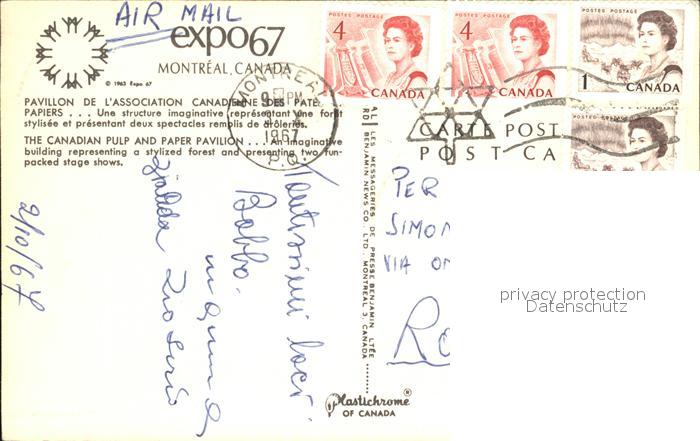 AIR MAIL
expo67
MONTRÉAL, CANADA
© 1963 Expo 67
PAVILLON DE L'ASSOCIATION CANADIENNE DES PATES
PAPIERS . . . Une structure imaginative représentant une forêt
stylisée et présentant deux spectacles remplis de drôleries.
THE CANADIAN PULP AND PAPER PAVILION . . . An imaginative
building representing a stylized forest and presenting two fun-
packed stage shows.
2/10/67
Tantissimi baci
Babbo
mamma
MONTREAL
9 PM
1967
P.Q.
LES MESSAGERIES DE PRESSE BENJAMIN LTÉE
BENJAMIN NEWS CO. LTD. MONTREAL 3, CANADA
Plastichrome®
OF CANADA
POSTES POSTAGE
4
CANADA
POSTES POSTAGE
4
CANADA
POSTES POSTAGE
1
CANADA
CARTE POST
POST CA
PER
SIMON
VIA
privacy protection
Datenschutz